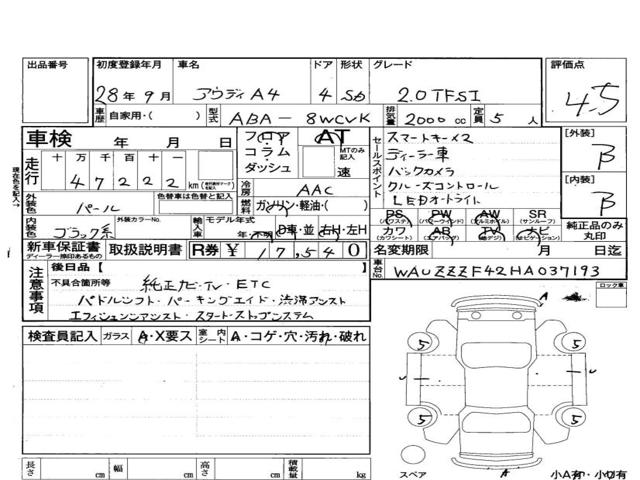 出品番号 初度登録年月 車名 ドア 形状 グレード 評価点
28年9月 アウディA4 4 Sb 2.0TFSI 4.5
車歴 自家用・( ) 型式 ABA-8WCVK 排気量 2000cc 定員 5人
車検 年 月 日 フロア コラム ダッシュ AT MTのみ記入 速 セールスポイント スマートキー×2 [外装] B
現在色を記入→ 走行 十 万 千 百 十 一
4 7 2 2 2 km ディーラー車
バックカメラ
冷房 AAC クルーズコントロール [内装] B
外装色 パール 色替車は色替と記入 燃料 ガソリン・軽油・( ) LEDオートライト
内装色 ブラック系 外装カラーNo. 輸入車 モデル年式 年・不明 D車・並 右H・左H PS PW AW SR
(パワステ) (パワーウインド) (アルミホイル) (サンルーフ)
カワ AB TV ナビ 純正品のみ丸印
(カワシート) (エアバック) (地デジ)
新車保証書 取扱説明書 R券 ¥ 17,540 名変期限 月 日迄
ディーラー捺印あるもの
注意事項 後日品【 】 車台No. WAUZZZF42HA037193
不具合箇所など 純正ナビ・TV・ETC
パドルシフト・パーキングエイド・渋滞アシスト
エフィシェンシアシスト・スタートストップシステム
ロック車
検査員記入 ガラス A・X要ス 室内シート A・コゲ・穴・汚れ・破れ
A
5 5
5 5
A
長さ cm 幅 cm 高さ cm 積載量 kg スペア 小A有・小U有